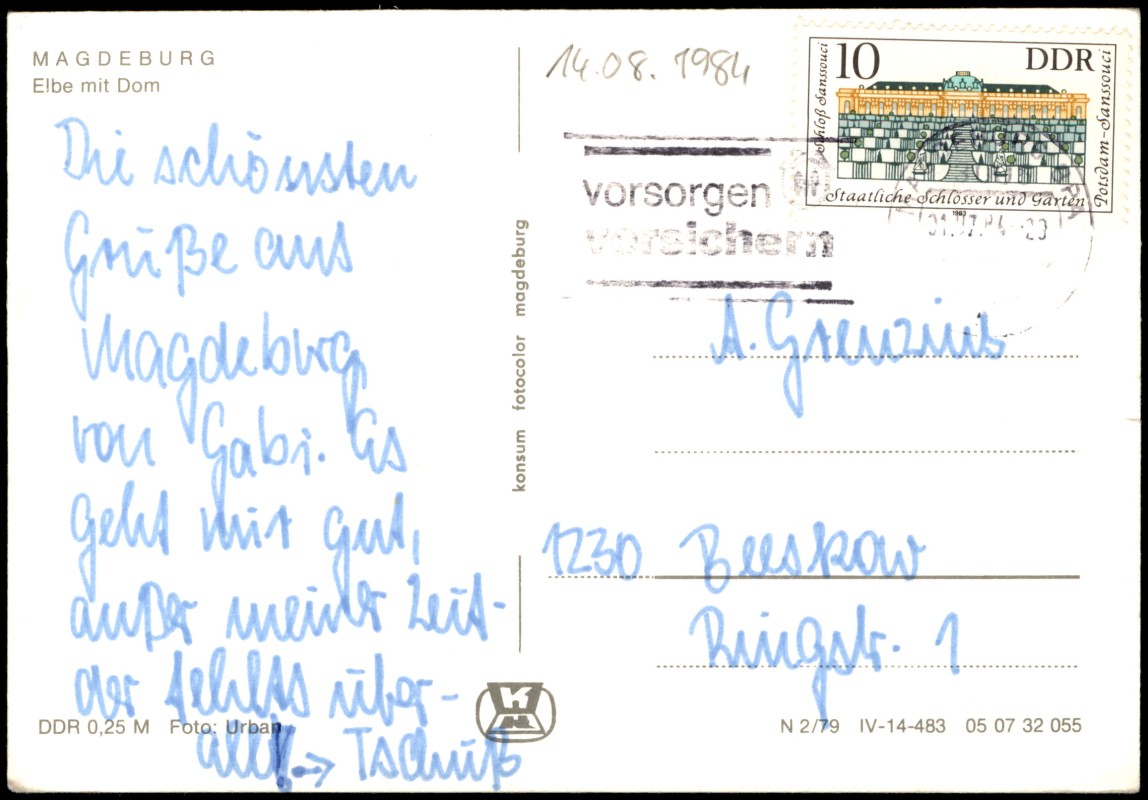 MAGDEBURG
Elbe mit Dom
Die schönsten
Grüße aus
Magdeburg
von Gabi. Es
geht mir gut,
außer meiner Zeit-
der fehlts über-
all! → Tschüß
DDR 0,25 M Foto: Urban
konsum fotocolor magdeburg
K
14.08.1984
vorsorgen
versichern
10 DDR
Schloß Sanssouci
Potsdam-Sanssouci
Staatliche Schlösser und Gärten
1983
A. Grenzius
1230 Beeskow
Ringstr. 1
N 2/79 IV-14-483 05 07 32 055